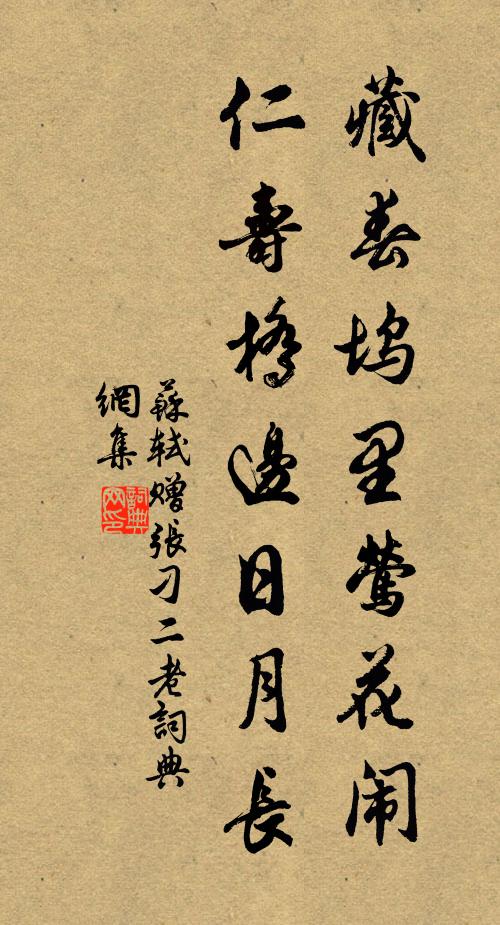 藏春坞里莺花闹
仁壽橋邊日月長
蘇軾贈張刁二老詞典
網集
詞典
网印